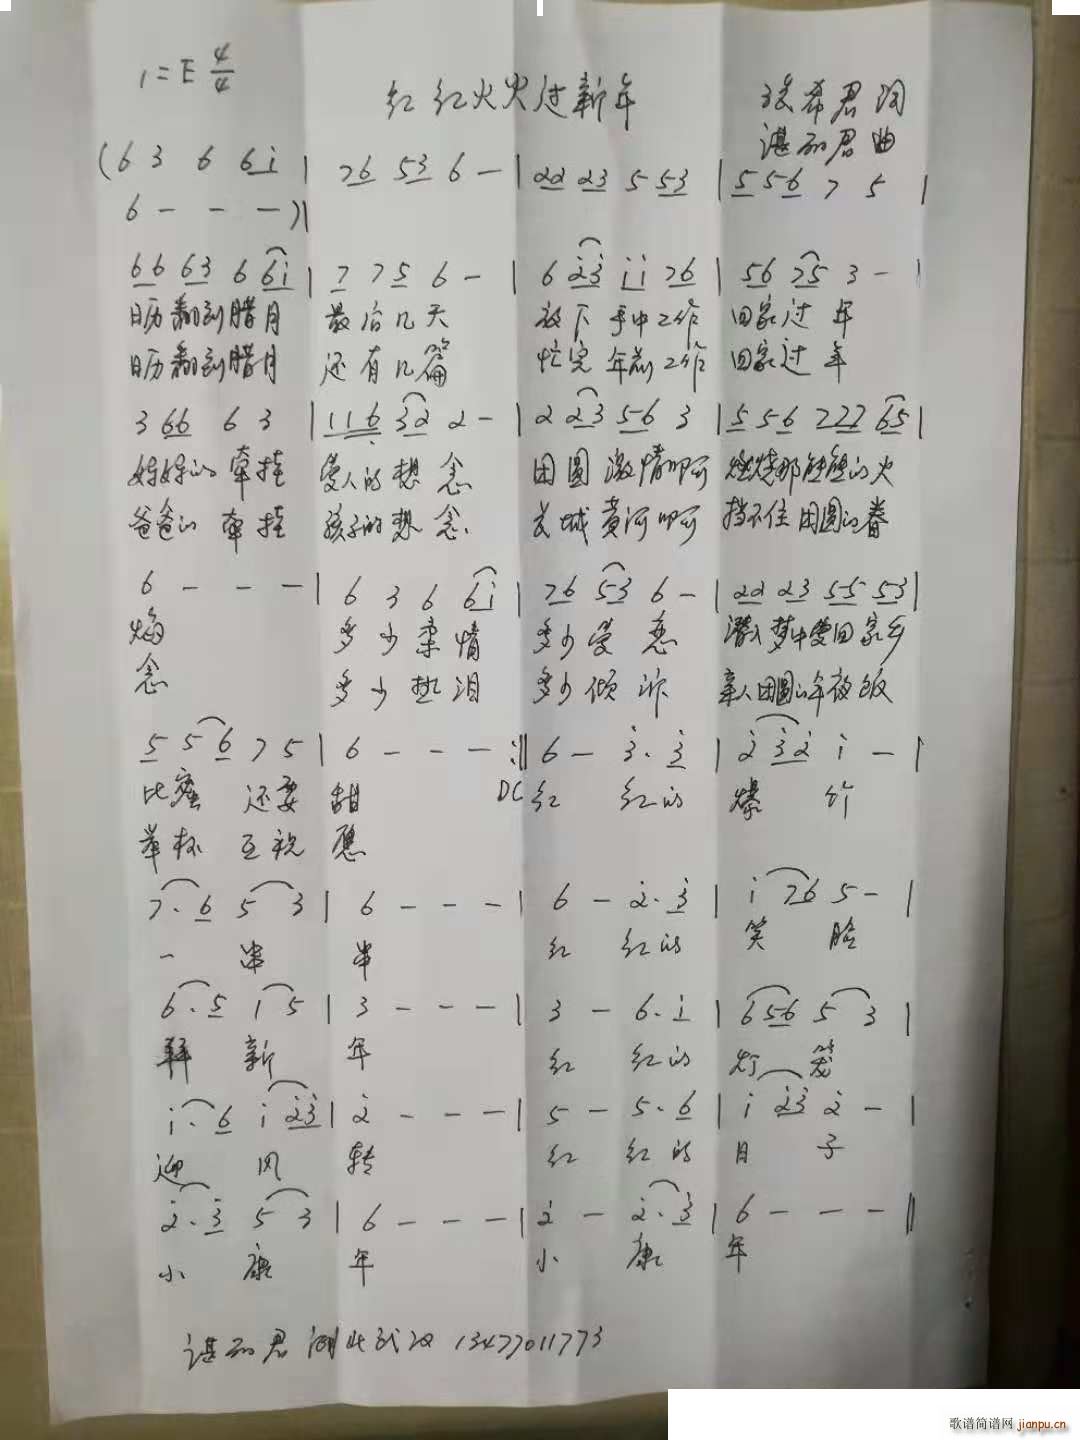 1=E 4/4
红红火火过新年
张希君 词
谌丽君 曲
(6 3 6 6i | 76 53 6 - | 22 23 5 53 | 5 56 7 5 |
6 - - -)|
66 63 6 6i | 7 75 6 - | 6 23 ii 76 | 56 75 3 - |
日历翻到腊月 最后几天 放下手中工作 回家过年
日历翻到腊月 还有几篇 忙完年前工作 回家过年
3 66 6 3 | 116 32 2 - | 2 23 56 3 | 5 56 777 65 |
妈妈的牵挂 爱人的想念 团圆激情啊 燃烧那熊熊的火
爸爸的牵挂 孩子的想念 长城黄河啊 挡不住团圆的眷
6 - - - | 6 3 6 6i | 76 53 6 - | 22 23 55 53 |
焰 多少柔情 多少爱恋 潜入梦中爱回家乡
念 多少热泪 多少倾诉 亲人团圆的年夜饭
5 56 75 | 6 - - - :|| 6 - 3. 3 | 2 32 i - |
比蜜还要甜 DC 红 红的 爆竹
举杯互祝愿
7. 6 5 3 | 6 - - - | 6 - 2. 3 | i 76 5 - |
一串串 红 红的 笑脸
6. 5 1 5 | 3 - - - | 3 - 6. i | 656 5 3 |
拜新年 红 红的 灯笼
i. 6 i 23 | 2 - - - | 5 - 5. 6 | i 23 2 - |
迎风转 红 红的 日子
2. 3 5 3 | 6 - - - | 2 - 2. 3 | 6 - - - ||
小康年 小康年
谌丽君 湖北武汉 13477011773
歌谱简谱网 jianpu.cn